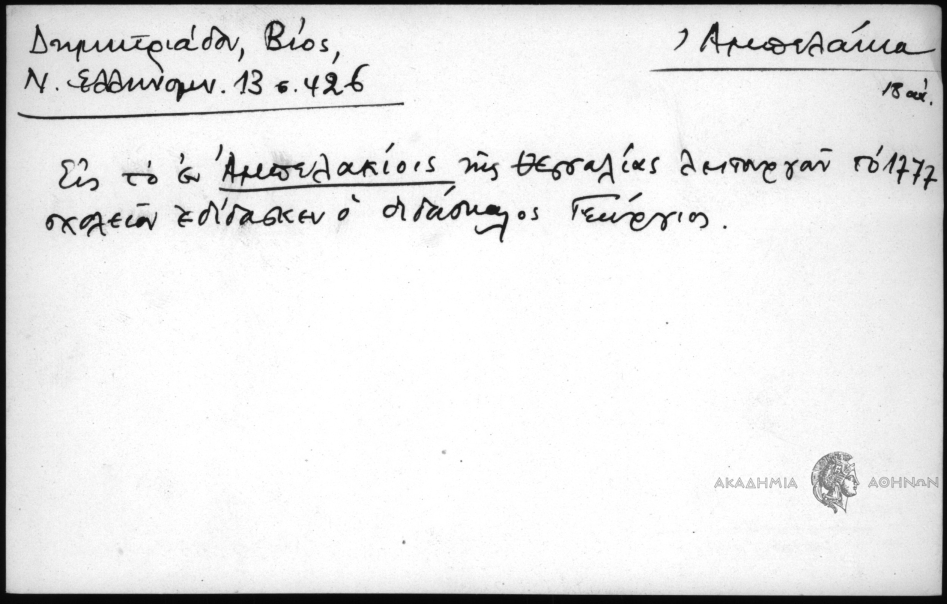 Δημητριάδου, Βίος,
Ν. Ἑλληνομν. 13 σ. 426
Ἀμπελάκια
18 αἰ.
Εἰς τὸ ἐν Ἀμπελακίοις τῆς Θεσσαλίας λειτουργοῦν τὸ 1777
σχολεῖον ἐδίδασκεν ὁ διδάσκαλος Γεώργιος.
ΑΚΑΔΗΜΙΑ ΑΘΗΝΩΝ